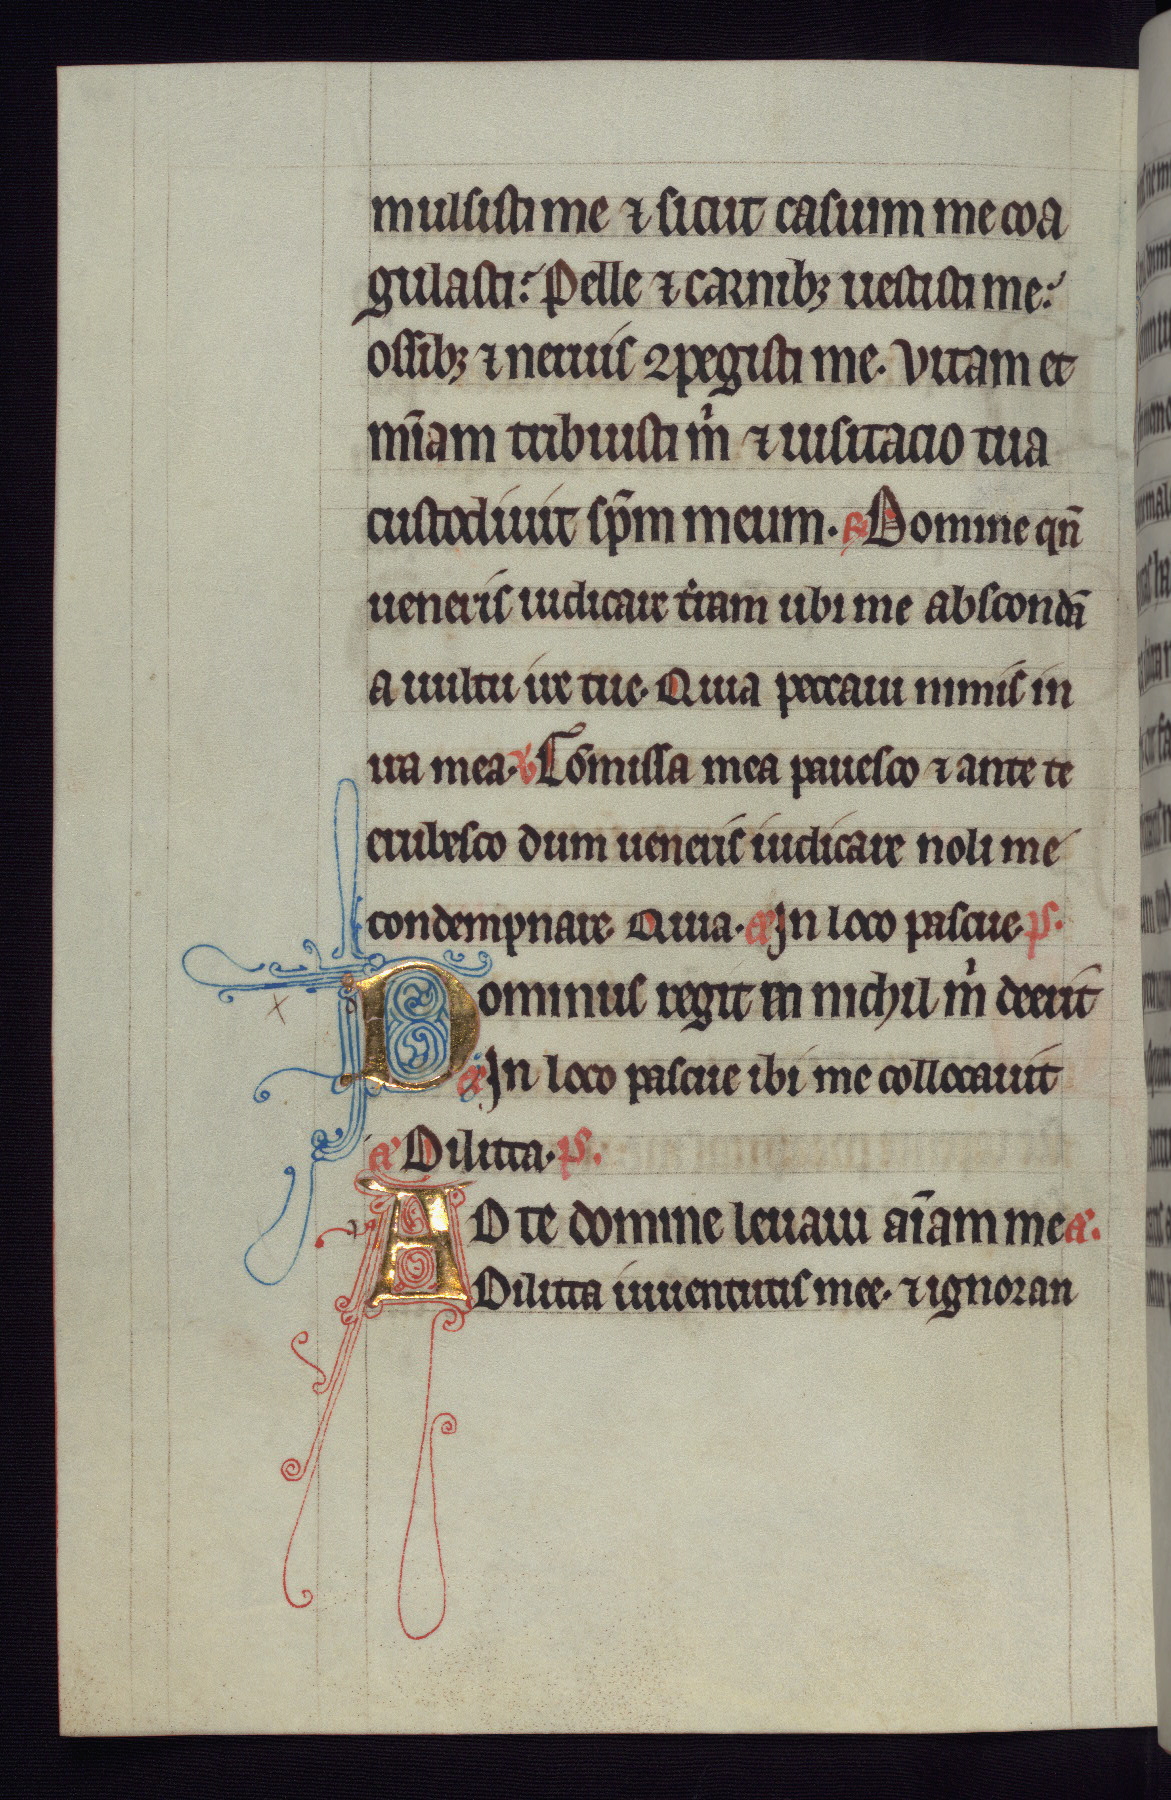 mulsisti me ⁊ sicut casium me coa
gulasti: Pelle ⁊ carnibꝫ uestisti me:
ossibꝫ ⁊ neruis ꝯpegisti me. Vitam et
mīam tribuisti m̍ ⁊ uisitacio tua
custodiuit sp̄m meum. R Domine qn̄
ueneris iudicare t̍ram ubi me abscondā
a uultu ire tue. Quia peccaui nimis in
uita mea. V Cōmissa mea pauesco ⁊ ante te
erubesco dum ueneris iudicare noli me
condempnare. Quia. a In loco pascue. ps.
Dominus regit me nichil m̍ deerit
a In loco pascue ibi me collocauit
a Dilicta. ps.
AD te domine leuaui aīam mea. a.
Dilicta iuuentutis mee. ⁊ ignoran